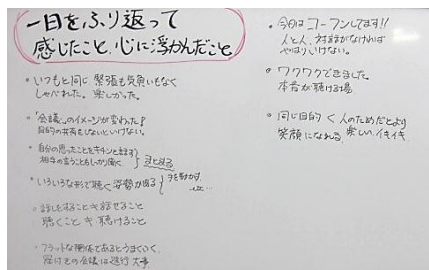 一日をふり返って
感じたこと、心に浮かんだこと
・いつもと同じ 緊張も気負いもなく
しゃべれた。楽しかった。
・「会議」のイメージが変わった!
目的の共有もしないといけない。
・自分の思ったことをキチンと話す
相手の言うこともしっかり聴く
・いろいろな形で聴く姿勢が図る
・話しをすること≠話せること
聴くこと≠聴けること
・フラットな関係であるとうまくいく。
会議は進行 大事
・今日はコーフンしてます!!
人と人、対話がなければ
やはりいけない。
・ワクワクできました。
本音が聴ける場
・同じ目的 < 人のためだとより
笑顔になれる、楽しい、イキイキ